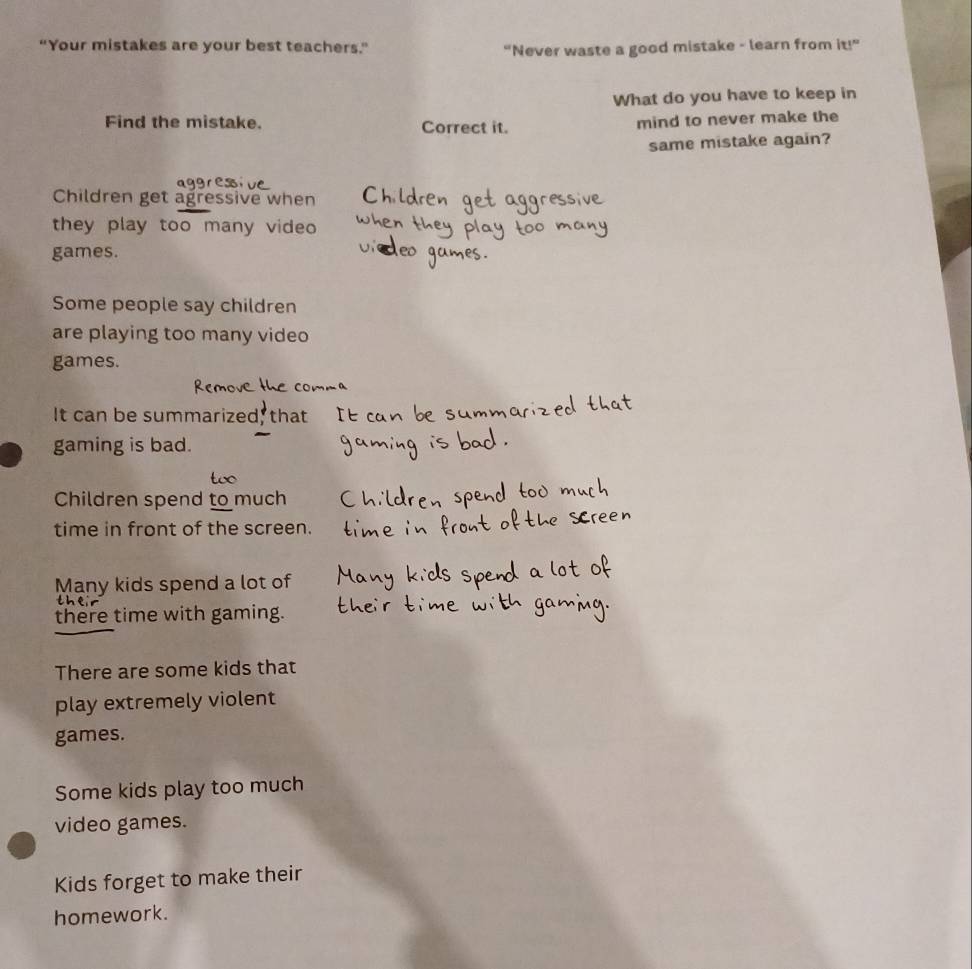 "Your mistakes are your best teachers."
"Never waste a good mistake - learn from it!"
Find the mistake.
Correct it.
What do you have to keep in
mind to never make the
same mistake again?
aggressive
Children get agressive when
they play too many video
games.
Children get aggressive
when they play too many
video games.
Some people say children
are playing too many video
games.
Remove the comma
It can be summarized, that
gaming is bad.
It can be summarized that
gaming is bad.
too
Children spend to much
time in front of the screen.
Children spend too much
time in front of the screen
Many kids spend a lot of
their
there time with gaming.
Many kids spend a lot of
their time with gaming.
There are some kids that
play extremely violent
games.
Some kids play too much
video games.
Kids forget to make their
homework.